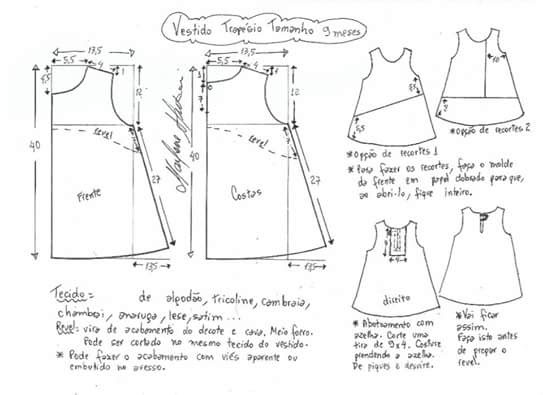 Vestido Trapésio Tamanho 9 meses
17,5
5,5
4
1
5,5
12
40
revel
Frente
27
13,5
17,5
5,5
4
1
1
7
12
40
revel
Costas
27
13,5
8,5
5,5
*Opção de recortes 1
10
2
*Opção de recortes 2
* Para fazer os recortes, faça o molde
da frente em papel dobrado para que,
ao abri-lo, fique inteiro.
9
4
direito
* Abotoamento com
azelha. Corte uma
tira de 9x4. Costure
prendendo a azelha.
De piques e desvire.
* Vai ficar
assim.
Faça isto antes
de pregar o
revel.
Tecido = de algodão, tricoline, cambraia,
chambrai, anaruga, lese, satim ...
Revel= vira de acabamento do decote e cava. Meio forro.
Pode ser cortado no mesmo tecido do vestido.
* Pode fazer o acabamento com viés aparente ou
embutido no avesso.